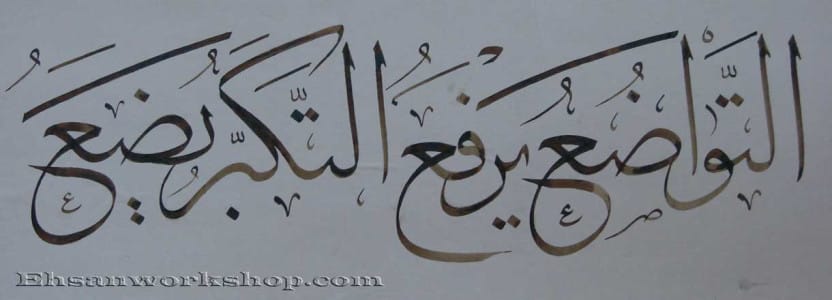 التَّواضُعُ يَرفَعُ التَّكَبُّرُ يَضَعُ
Ehsanworkshop.com